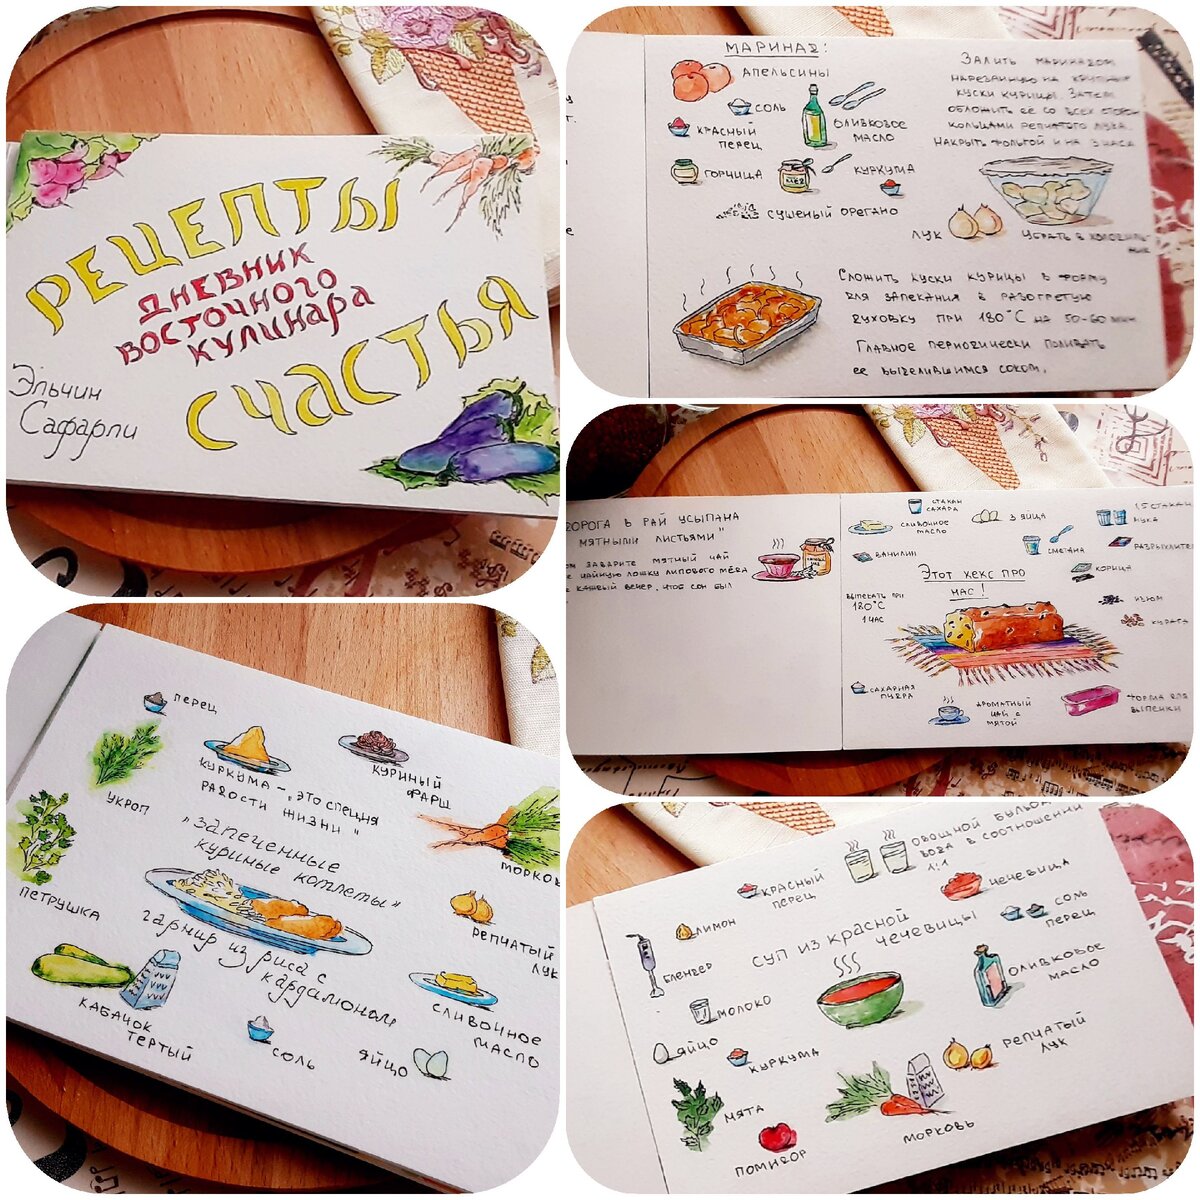 РЕЦЕПТЫ
ДНЕВНИК
ВОСТОЧНОГО
КУЛИНАРА
СЧАСТЬЯ
Эльчин
Сафарли
МАРИНАД:
АПЕЛЬСИНЫ
СОЛЬ
КРАСНЫЙ
ПЕРЕЦ
ОЛИВКОВОЕ
МАСЛО
ГОРЧИЦА
КУРКУМА
СУШЕНЫЙ ОРЕГАНО
ЗАЛИТЬ МАРИНАДОМ
НАРЕЗАННУЮ НА КРУПНЫЕ
КУСКИ КУРИЦЫ. ЗАТЕМ
ОБЛОЖИТЬ ЕЕ СО ВСЕХ СТОРОН
КОЛЬЦАМИ РЕПЧАТОГО ЛУКА.
НАКРЫТЬ ФОЛЬГОЙ И НА 3 ЧАСА
ЛУК
УБРАТЬ В ХОЛОДИЛЬ-
НИК
СЛОЖИТЬ КУСКИ КУРИЦЫ В ФОРМУ
ДЛЯ ЗАПЕКАНИЯ В РАЗОГРЕТУЮ
ДУХОВКУ ПРИ 180°С НА 50-60 МИН
ГЛАВНОЕ ПЕРИОДИЧЕСКИ ПОЛИВАТЬ
ЕЕ ВЫДЕЛИВШИМСЯ СОКОМ.
ДОРОГА В РАЙ УСЫПАНА
МЯТНЫМИ ЛИСТЬЯМИ"
ЗАВАРИТЕ МЯТНЫЙ ЧАЙ
ЧАЙНУЮ ЛОЖКУ ЛИПОВОГО МЁДА
КАЖДЫЙ ВЕЧЕР, ЧТОБ СОН БЫЛ
СТАКАН
САХАРА
СЛИВОЧНОЕ
МАСЛО
3 ЯЙЦА
1,5 СТАКАН
МУКА
ВАНИЛИН
СМЕТАНА
РАЗРЫХЛИТЕЛ
КОРИЦА
ЭТОТ КЕКС ПРО
НАС!
ВЫПЕКАТЬ ПРИ
180°С
1 ЧАС
ИЗЮМ
КУРАГА
САХАРНАЯ
ПУДРА
АРОМАТНЫЙ
ЧАЙ С
МЯТОЙ
ФОРМА ДЛЯ
ВЫПЕЧКИ
ПЕРЕЦ
УКРОП
КУРКУМА – „ЭТО СПЕЦИЯ
РАДОСТИ ЖИЗНИ"
КУРИНЫЙ
ФАРШ
МОРКОВ
„ЗАПЕЧЕННЫЕ
КУРИНЫЕ КОТЛЕТЫ»
ПЕТРУШКА
гарнир из риса с
кардамоном
РЕПЧАТЫЙ
ЛУК
КАБАЧОК
ТЕРТЫЙ
СОЛЬ
ЯЙЦО
СЛИВОЧНОЕ
МАСЛО
ОВОЩНОЙ БУЛЬОН
ВОДА В СООТНОШЕНИИ
1:1
КРАСНЫЙ
ПЕРЕЦ
ЧЕЧЕВИЦА
ЛИМОН
СОЛЬ
ПЕРЕЦ
СУП ИЗ КРАСНОЙ
ЧЕЧЕВИЦЫ
БЛЕНДЕР
МОЛОКО
ОЛИВКОВОЕ
МАСЛО
ЯЙЦО
КУРКУМА
РЕПЧАТЫЙ
ЛУК
МЯТА
ПОМИДОР
МОРКОВЬ